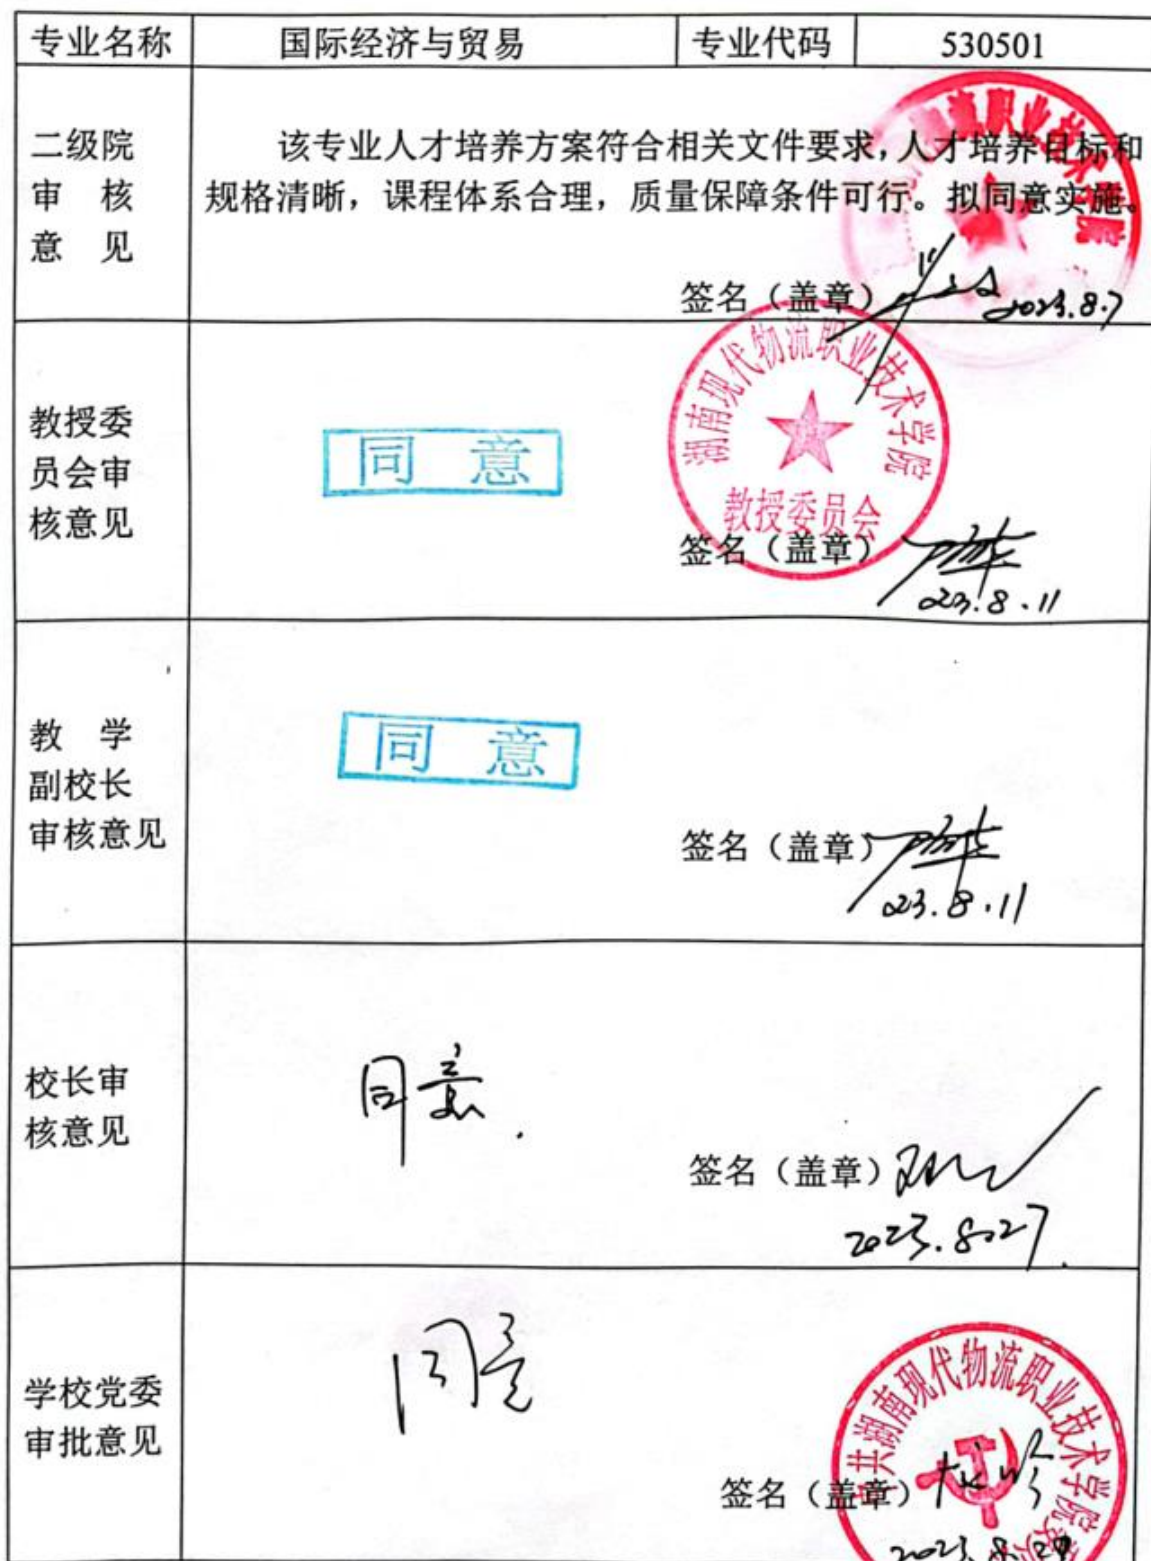 专业名称 国际经济与贸易 专业代码 530501
二级院
审 核
意 见
该专业人才培养方案符合相关文件要求，人才培养目标和
规格清晰，课程体系合理，质量保障条件可行。拟同意实施。
签名（盖章）
2023.8.7
教授委
员会审
核意见
同 意
湖南现代物流职业技术学院
教授委员会
签名（盖章）
23.8.11
教 学
副校长
审核意见
同 意
签名（盖章）
23.8.11
校长审
核意见
同意.
签名（盖章）
2023.8.27.
学校党委
审批意见
同意
中共湖南现代物流职业技术学院
签名（盖章）